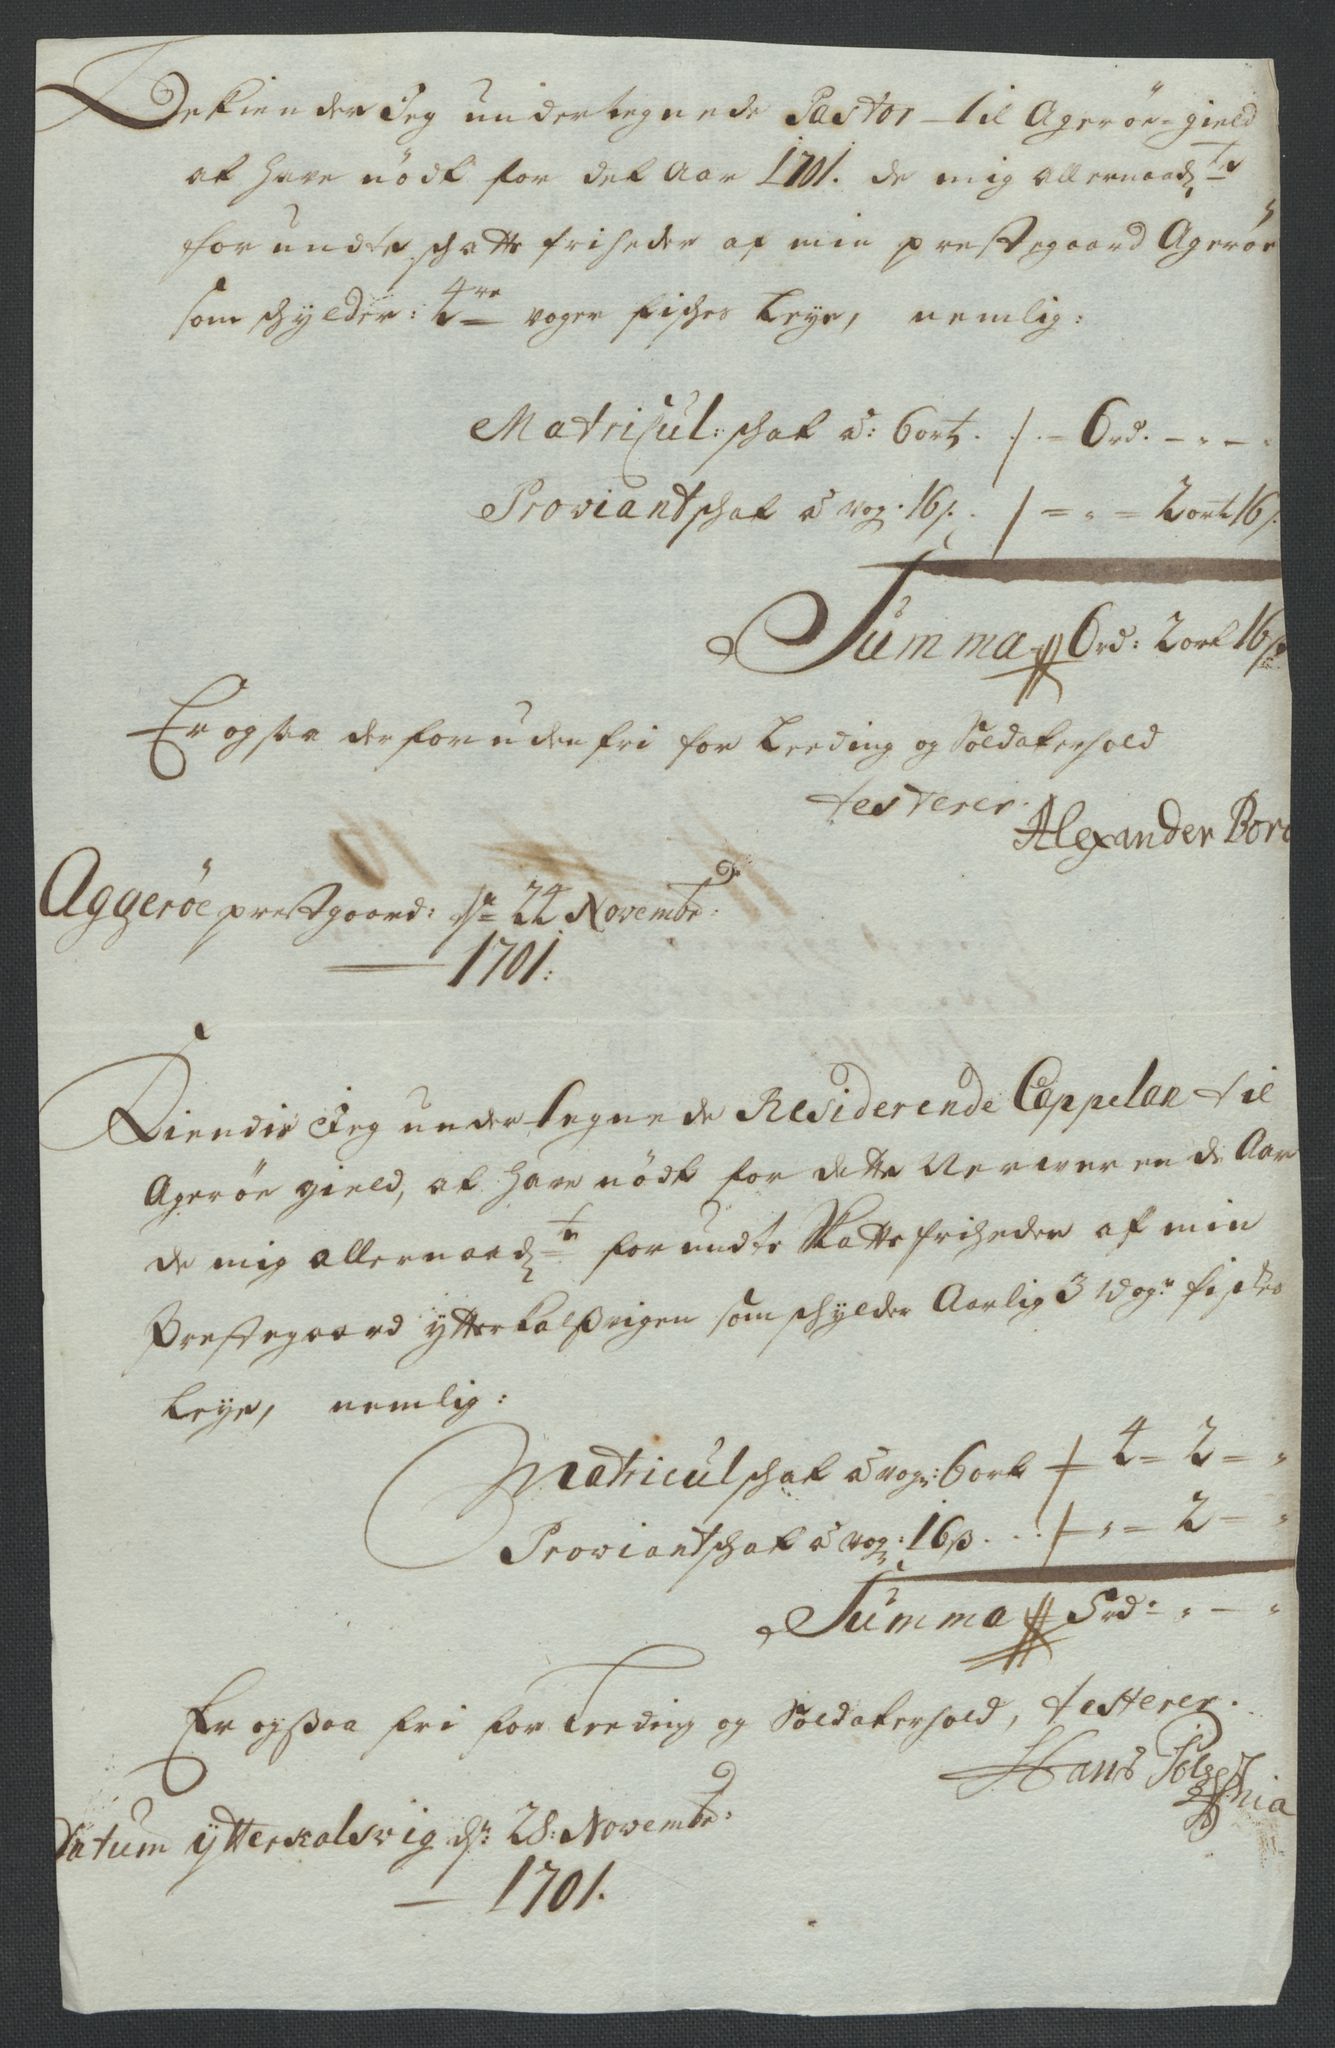 Bekiender Jeg undertegnede Pastor til Agerøe-gield
at have nødt for det Aar 1701. de mig allernaadste
forundte schatte friheder af min prestegaard Agerøe
som schylder: 4re voger fisches leye, nemlig:
Matricul: schat â: 6 ort. . / . = 6 rd. - " - "
Proviantschat â vog: 16 s. . / = " = 2 ort 16 s.
Summa 6 rd: 2 ort 16 s
Er ogsaa der foruden fri for Leeding og Soldaterhold
testerer.
Alexander Bor
Aggerøe prestgaard: dn 24 Novembr:
1701:
Kiendis Jeg undertegnede Residerende Cappelan til
Agerøe gield, at have nødt for dette Nerwerende Aar
de mig allernaadste forundte Skatte friheder af min
Prestegaard ytterkalsvigen som schylder Aarlig 3 wogr fisches
leye, nemlig:
Matriculschat â vog: 6 ort / 4 = 2 = "
Proviantschat â vog: 16 s. . . / - " = 2 - "
Summa 5 rd - " - "
Er ogsaa fri for Leeding og Soldaterhold, testerer.
Hans
Datum ytterkalsvig dn: 28: Novembr:
1701.